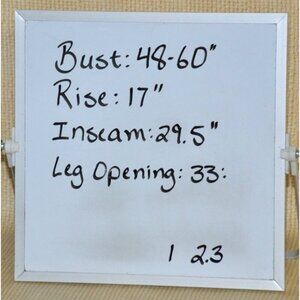 Bust: 48-60"
Rise: 17"
Inseam: 29.5"
Leg Opening: 33:
1 2.3